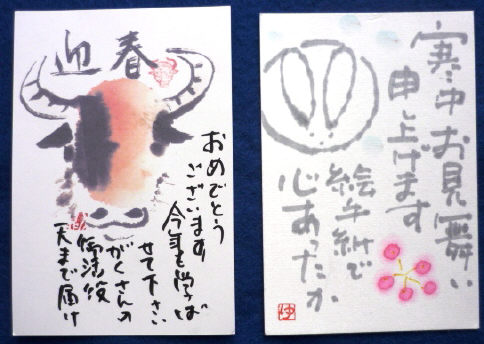 迎春
おめでとう
ございます
今年も学ば
せて下さい
がくさんの
天まで届け
寒中お見舞い
申し上げます
絵手紙で
心あったか